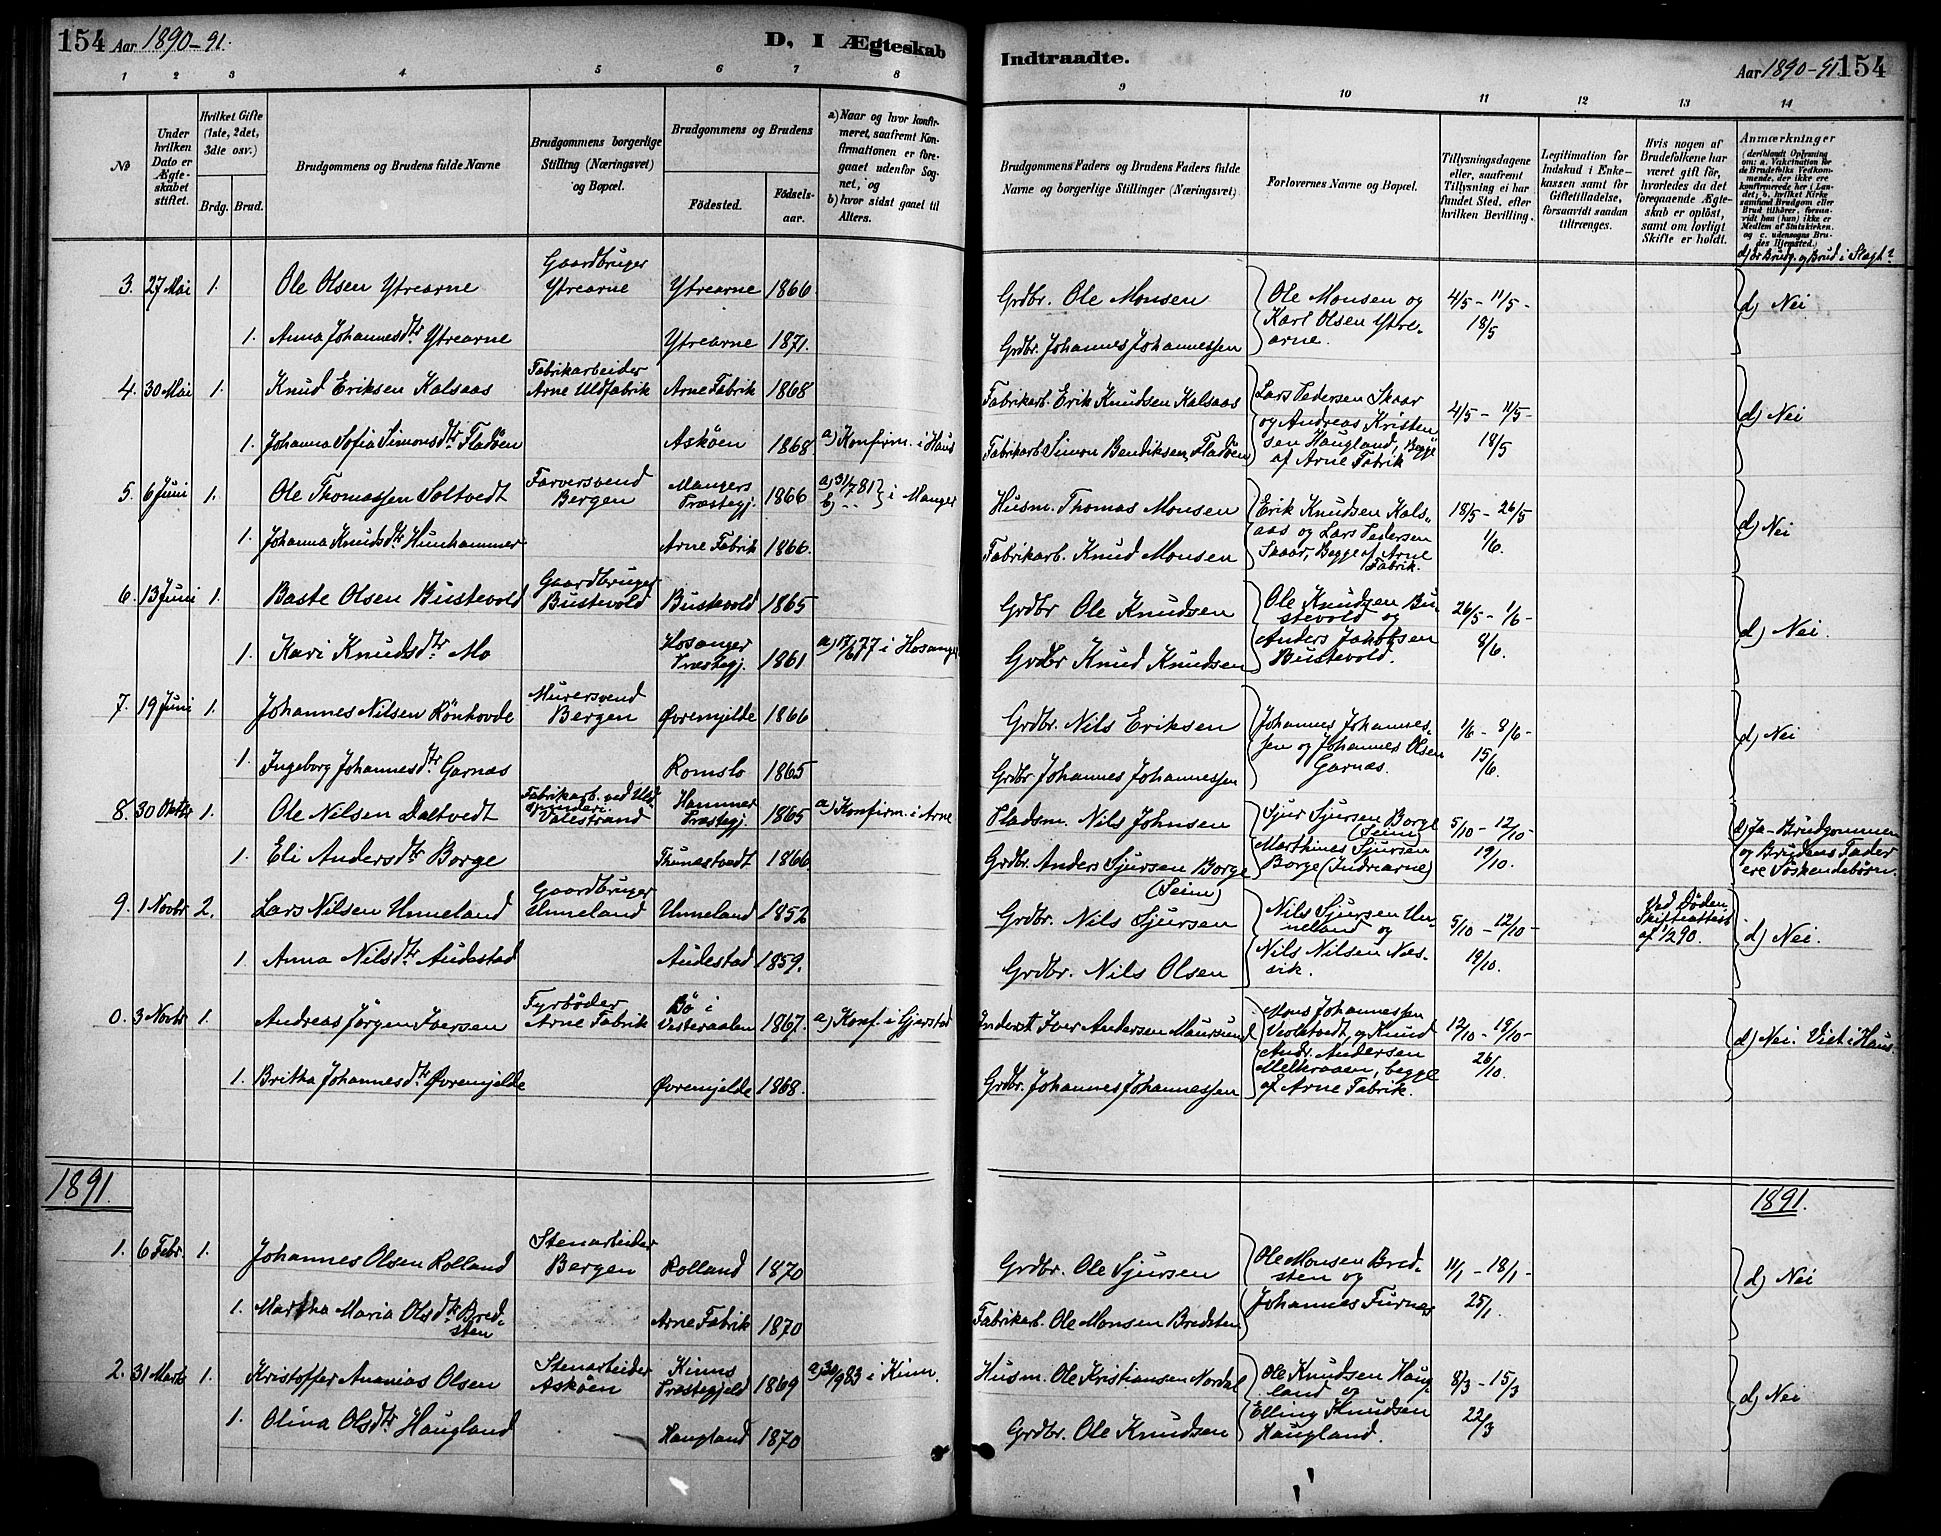 154 Aar 1890-91.
D, I Ægteskab
Indtraadte.
Aar 1890-91 154
1 2 3 4 5 6 7 8
9 10 11 12 13 14
No
Under hvilken Dato er Ægteskabet stiftet.
Hvilket Gifte (1ste, 2det, 3die osv.)
Brdg. Brud.
Brudgommens og Brudens fulde Navne
Brudgommens borgerlige Stilling (Næringsvei) og Bopæl.
Brudgommens og Brudens
Fødested.
Fødselsaar.
a) Naar og hvor konfirmeret, saafremt Konfirmationen er foregaaet udenfor Sognet, og
b) hvor sidst gaaet til Alters.
Brudgommens Faders og Brudens Faders fulde Navne og borgerlige Stillinger (Næringsvei)
Forlovernes Navne og Bopæl.
Tillysningsdagene eller, saafremt Tillysning ei har fundet Sted, efter hvilken Bevilling.
Legitimation for Indskud i Enkekassen samt for Giftetilladelse, forsaavidt saadan tiltrænges.
Hvis nogen af Brudefolkene har været gift før, hvorledes da det foregaaende Ægteskab er opløst, samt om lovligt Skifte er holdt.
Anmærkninger
(deriblandt Oplysning om: a. Vakcination for de Brudefolks Vedkommende, der ikke ere konfirmerede her i Landet; b. hvilket Kirkesamfund Brudgom eller Brud tilhører, forsaavidt han (hun) ikke er Medlem af Statskirken, og c. udensogns Brudes Hjemsted.)
d) er Brudg. og Brud i Slægt?
3. 27 Mai 1. Ole Olsen Ytrearne Gaardbruger Ytrearne Ytrearne 1866 Grdbr. Ole Monsen Ole Monsen og Karl Olsen Ytrearne. 4/5 - 11/5 - 18/5 d) Nei
1. Anna Johannesdtr Ytrearne Ytrearne 1871. Grdbr. Johannes Johannessen
4. 30 Mai 1. Knud Eriksen Kalsaas Fabrikarbeider Arne Uldfabrik Arne Fabrik 1868 Fabrikarb. Erik Knudsen Kalsaas Lars Pedersen Skaar og Andreas Kristensen Haugland, Begge af Arne Fabrik 4/5 - 11/5 - 18/5 d) Nei
1. Johanna Sofia Simonsdtr Fladöen Askøen 1868 a) Konfirm. i Haus Fabrikarb. Simon Bendiksen Fladöen
5. 6 Juni 1. Ole Thomassen Soltvedt Farversvend Bergen Mangers Præstegj. 1866 a) 31/7 81 b) -- } i Manger Husm. Thomas Monsen Erik Knudsen Kalsaas og Lars Pedersen Skaar, Begge af Arne Fabrik. 18/5 - 26/5 1/6. d) Nei
1. Johanna Knudsdtr Hunhammer Arne Fabrik 1866. Fabrikarb. Knud Monsen
6. 13 Juni 1. Baste Olsen Bustevold Gaardbruger Bustevold Bustevold 1865 Grdbr Ole Knudsen Ole Knudsen Bustevold og Anders Jakobsen Bustevold. 26/5 - 1/6 - 8/6. d) Nei.
1. Kari Knudsdtr Mo Hosanger Præstegj. 1861 a) 17/6 77 i Hosanger Grdbr Knud Knudsen
7. 19 Juni 1. Johannes Nilsen Rönhovde Murersvend Bergen Øvremjelde 1866 Grdbr. Nils Eriksen Johannes Johannessen og Johannes Olsen Garnæs. 1/6 - 8/6 - 15/6 d) Nei
1. Ingeborg Johannesdtr. Garnæs Romslo 1865 Grdbr Johannes Johannessen
8. 30 Oktbr 1. Ole Nilsen Daltvedt Fabrikarb. ved Uldspinderi. Valestrand Hammer Præstegj. 1865 a) Konfirm. i Arne Pladsm. Nils Johnsen Sjur Sjursen Borge (Seim) Marthines Sjursen Borge (Indrearne) 5/10 - 12/10 - 19/10. d) Ja - Brudgommen og Brudens Fader ere Søskendebørn.
1. Eli Andersdtr Borge Thunestvedt 1866. Grdbr. Anders Sjursen Borge (Seim)
9. 1 Novbr 2. Lars Nilsen Unneland Gaardbruger Unneland Unneland 1852 Grdbr. Nils Sjursen Nils Sjursen Unneland og Nils Nilsen Næssvik. 5/10 - 12/10 - 19/10. Ved Døden Skifteattest af 1/2 90. d) Nei.
1. Anna Nilsdtr Audestad Audestad 1859. Grdbr. Nils Olsen
0. 3 Novbr 1. Andreas Jørgen Iversen Fyrbøder Arne Fabrik Bø i Vesteraalen 1867. a) Konf. i Gjerstad Inderst Iver Andersen Maursund Mons Johannessen og Knud Andr. Andersen begge af Arne Fabrik. 12/10 - 19/10 - 26/10. d) Nei. Viet i Haus.
1. Britha Johannesdtr Øvremjelde Øvremjelde 1868. Grdbr. Johannes Johannessen
1891
1891.
1. 6 Febr. 1. Johannes Olsen Rolland Stenarbeider Bergen Rolland 1870 Grdbr. Ole Sjursen Ole Monsen Bredsten og Johannes Furnes 11/1 - 18/1 - 25/1. d) Nei
1. Martha Maria Olsdtr Bredsten Arne Fabrik 1870 Fabrikarb. Ole Monsen Bredsten
2. 31 Marts 1. Kristoffer Ananias Olsen Stenarbeider Askøen Kinns Præstegjeld 1869 a) 30/9 83 i Kinn. Husm. Ole Kristiansen Nordal Ole Knudsen Haugland og Elling Knudsen Haugland. 8/3 - 15/3 22/3 d) Nei
1. Olina Olsdtr Haugland Haugland 1870 Grdbr. Ole Knudsen